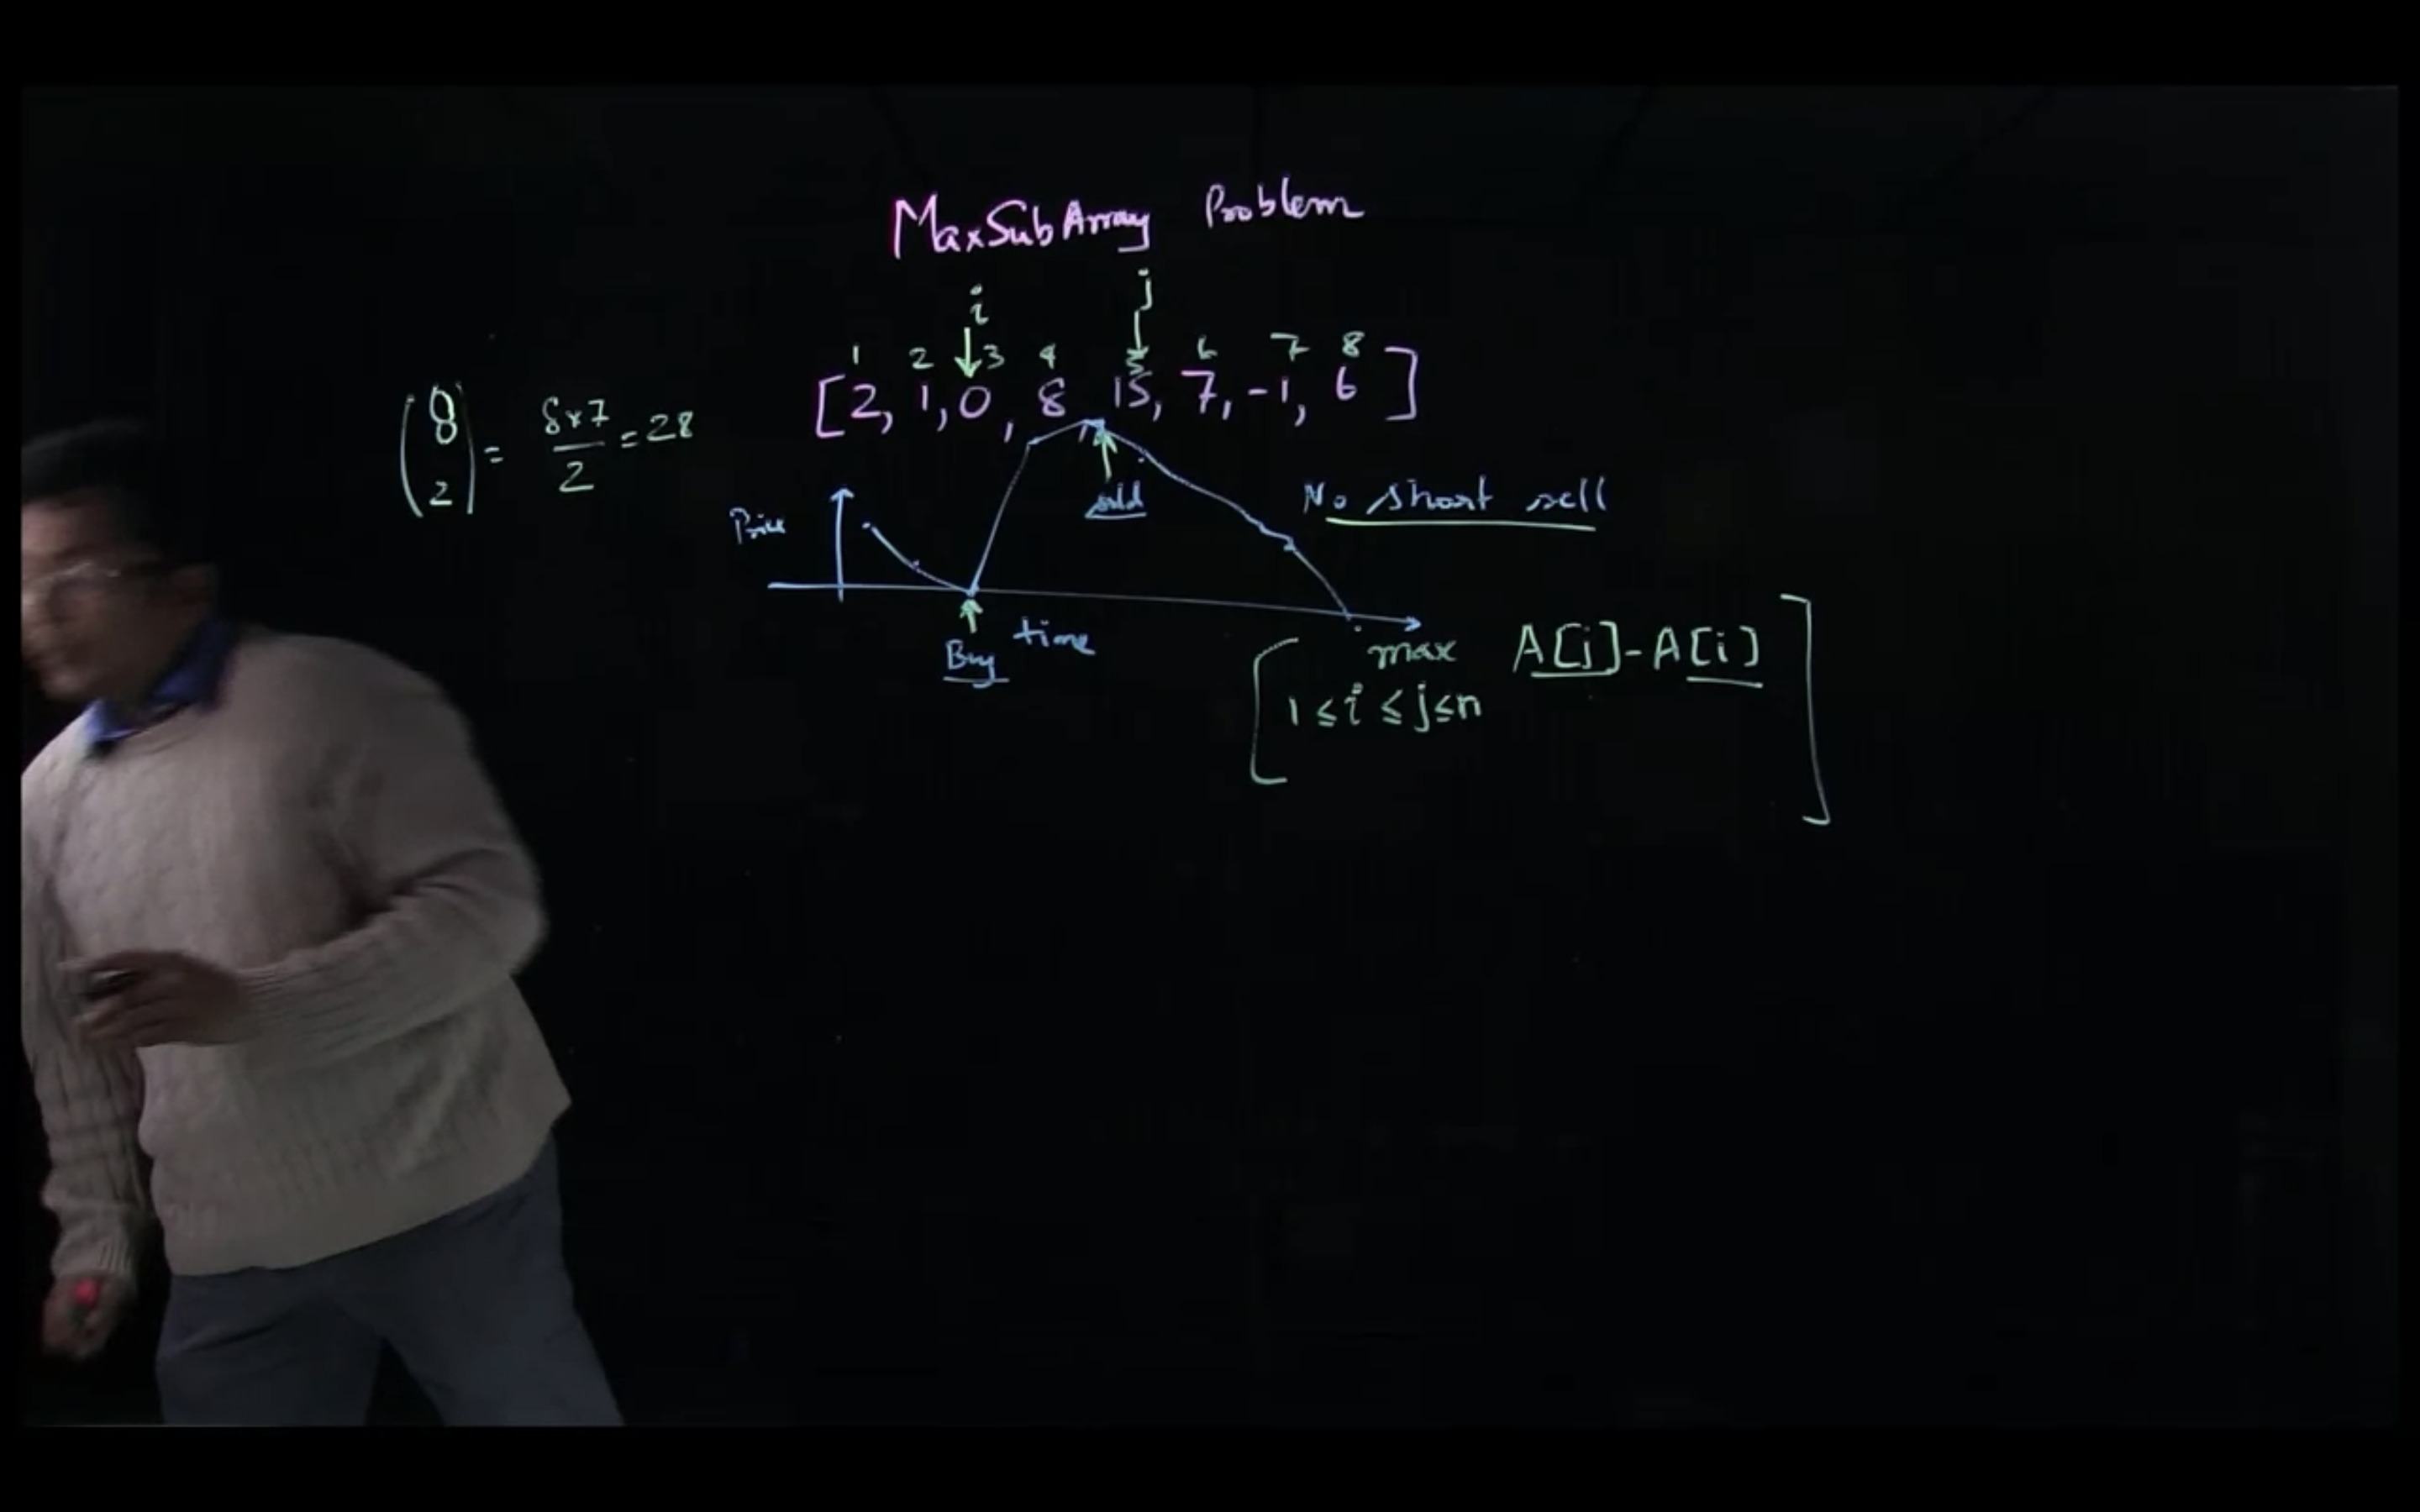 MaxSubArray Problem
i j
1 2 3 4 5 6 7 8
[2, 1, 0, 8 15, 7, -1, 6]
(8 2) = 8x7/2 = 28
Price
sold
No short sell
Buy
time
max A[j] - A[i]
1 ≤ i ≤ j ≤ n